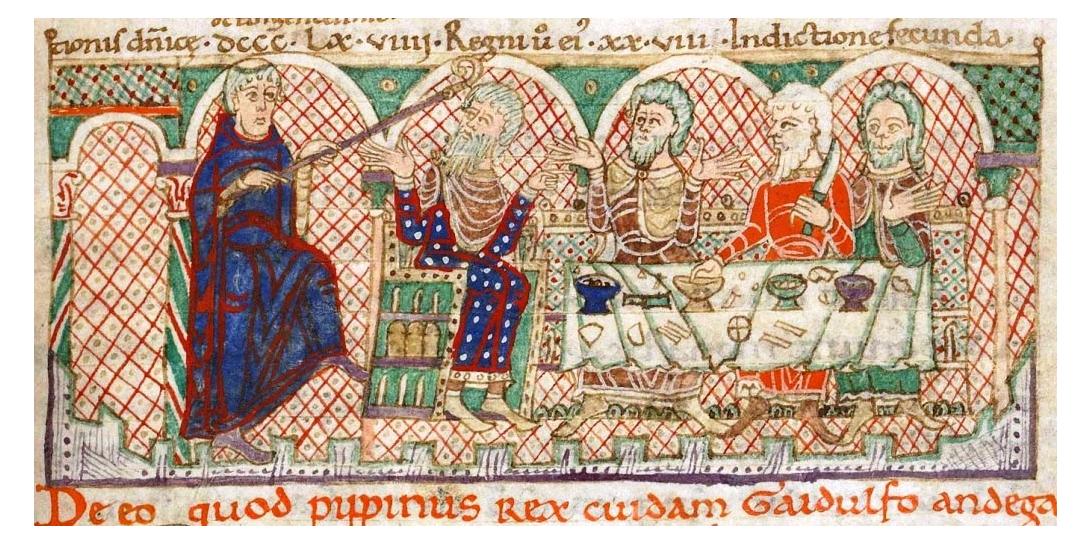 tionis dñicę · dccc · Lx · viiii · Regni ů ei᾿ · xx · viii · Indictione secunda ·
De eo quod pippinus Rex cuidam Gaidulfo andega